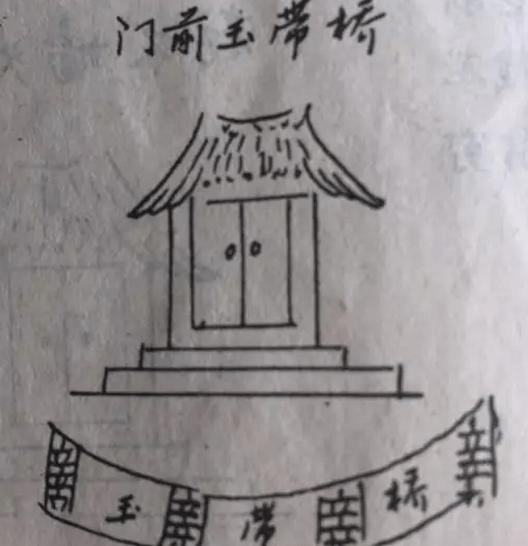 门前玉带桥
玉带桥